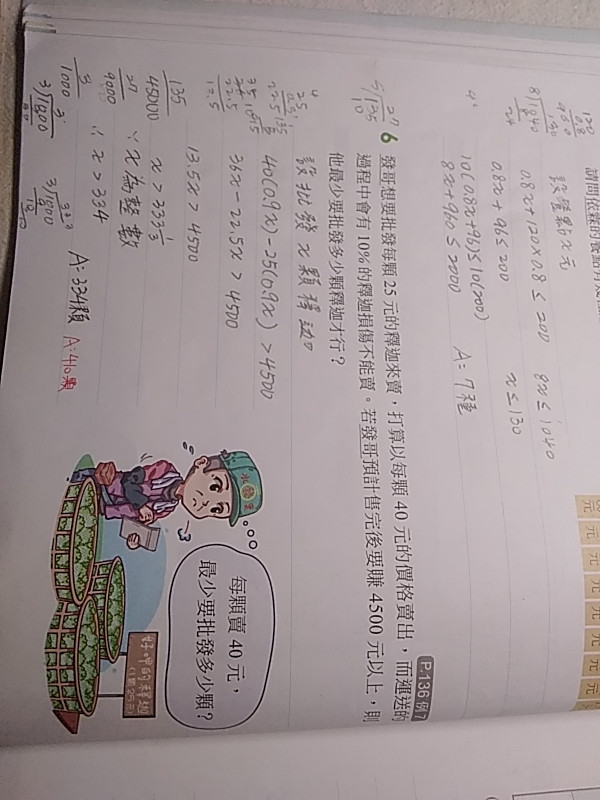 請問依霖的餐點有幾
設餐點x元
0.8x+120×0.8≤200
8x≤1040
0.8x+96≤200
x≤130
10(0.8x+96)≤10(200)
8x+960≤2000
A:7種
P.136 例7
6 發哥想要批發每顆 25 元的釋迦來賣，打算以每顆 40 元的價格賣出，而運送的
過程中會有 10% 的釋迦損傷不能賣。若發哥預計售完後要賺 4500 元以上，則
他最少要批發多少顆釋迦才行？
設批發x顆釋迦
40(0.9x)-25(0.9x)>4500
36x-22.5x>4500
13.5x>4500
x>333 1/3
∵x為整數
∴x>334
A:334顆
A:410顆
每顆賣 40 元，
最少要批發多少顆？
好呷的釋迦
(1顆25元)